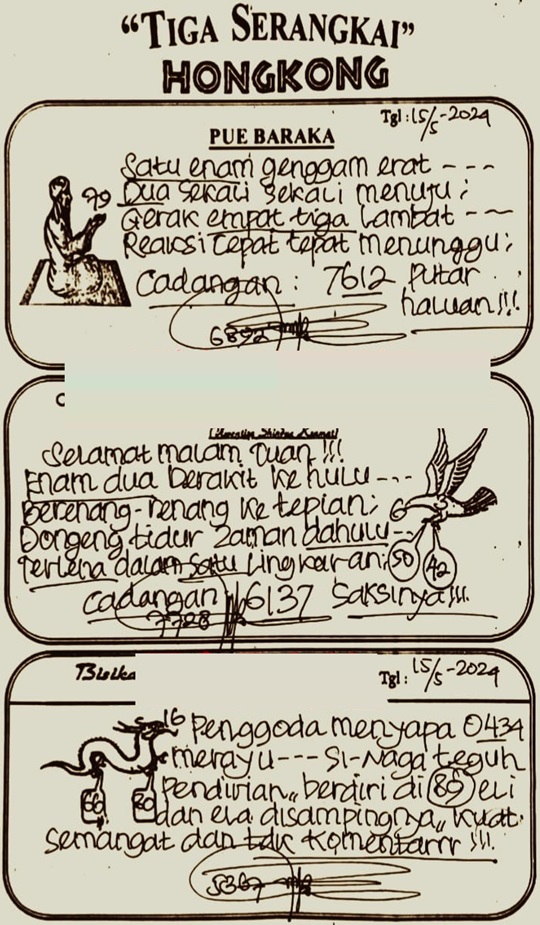 “TIGA SERANGKAI”
HONGKONG
Tgl : 15/5-2024
PUE BARAKA
Satu enam genggam erat ---
79 Dua sekali sekali menuju ;
Gerak empat tiga lambat ---
Reaksi cepat tepat menunggu ;
Cadangan : 7612 putar
haluan !!!
6892
Selamat malam Tuan !!!
Enam dua berakit ke hulu ---
Berenang-renang ke tepian ; 6
Dongeng tidur zaman dahulu --
Terlena dalam satu lingkaran ; 50 42
Cadangan 6137 Saksinya !!!
7728
Bisika
Tgl : 15/5-2024
16 Penggoda menyapa 0434
merayu --- Si-Naga teguh
Pendirian ,, berdiri di 89 eli
dan ela disampingnya ,, kuat
semangat dan tdk komentarrr !!!
5367